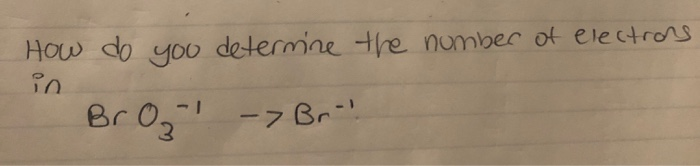 How do you determine the number of electrons
in
BrO₃⁻¹ -> Br⁻¹